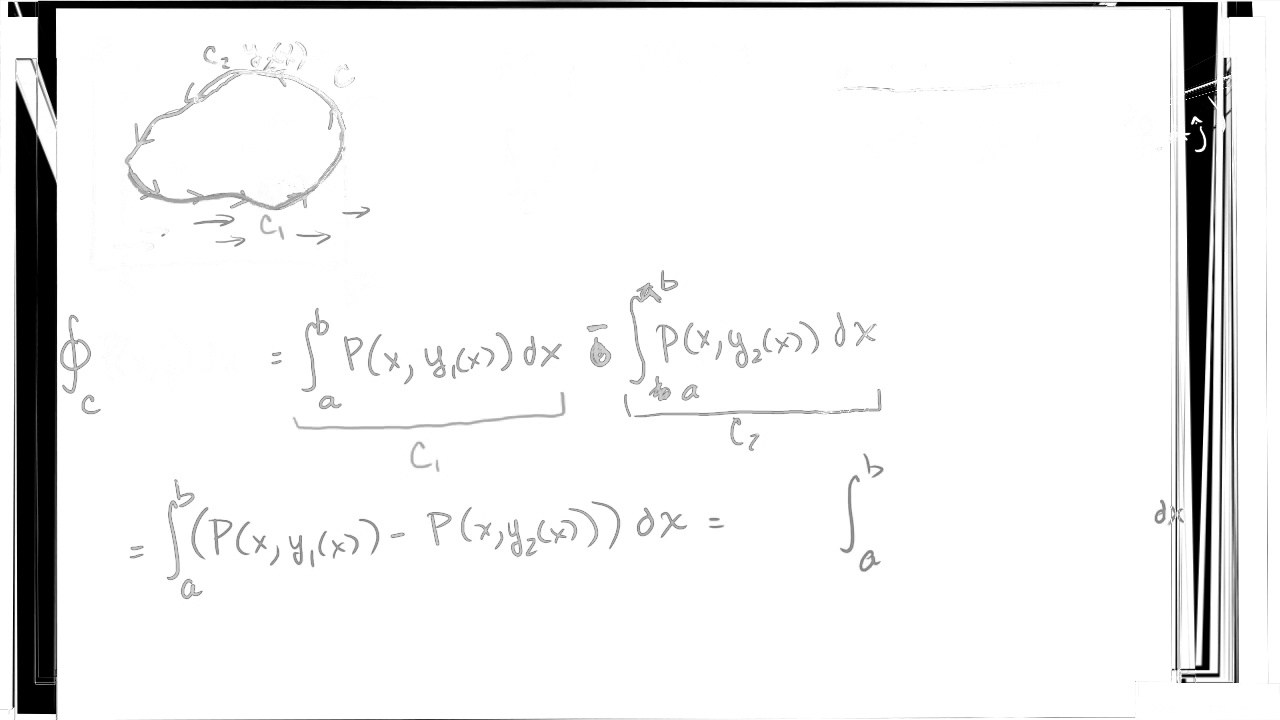 C₂ y₂(x) C
C₁
ĵ
∮_C = ∫_a^b P(x, y₁(x)) dx - ∫_a^b P(x, y₂(x)) dx
C₁ C₂
= ∫_a^b (P(x, y₁(x)) - P(x, y₂(x))) dx = ∫_a^b dx